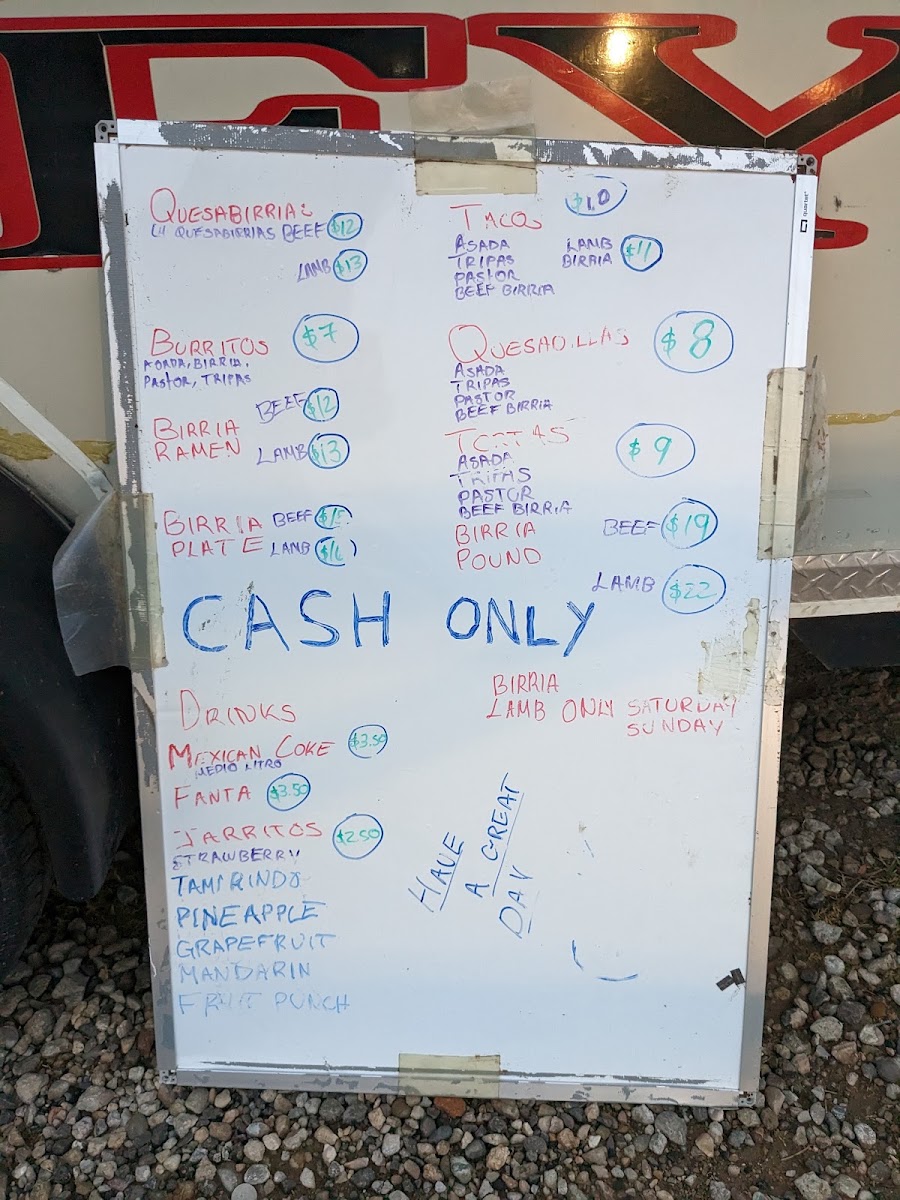 QUESABIRRIAS
QUESABIRRIAS BEEF $12
LAMB $13
BURRITOS $7
ASADA, BIRRIA,
PASTOR, TRIPAS
BIRRIA RAMEN
BEEF $12
LAMB $13
BIRRIA PLATE
BEEF
LAMB
TACOS $10
ASADA
TRIPAS
PASTOR
BEEF BIRRIA
LAMB BIRRIA $11
QUESADILLAS $8
ASADA
TRIPAS
PASTOR
BEEF BIRRIA
TORTAS $9
ASADA
TRIPAS
PASTOR
BEEF BIRRIA
BIRRIA POUND
BEEF $19
LAMB $22
CASH ONLY
DRINKS
MEXICAN COKE $3.50
MEDIO LITRO
FANTA $3.50
JARRITOS $2.50
STRAWBERRY
TAMIRINDO
PINEAPPLE
GRAPEFRUIT
MANDARIN
FRUIT PUNCH
BIRRIA
LAMB ONLY SATURDAY
SUNDAY
HAVE
A GREAT
DAY